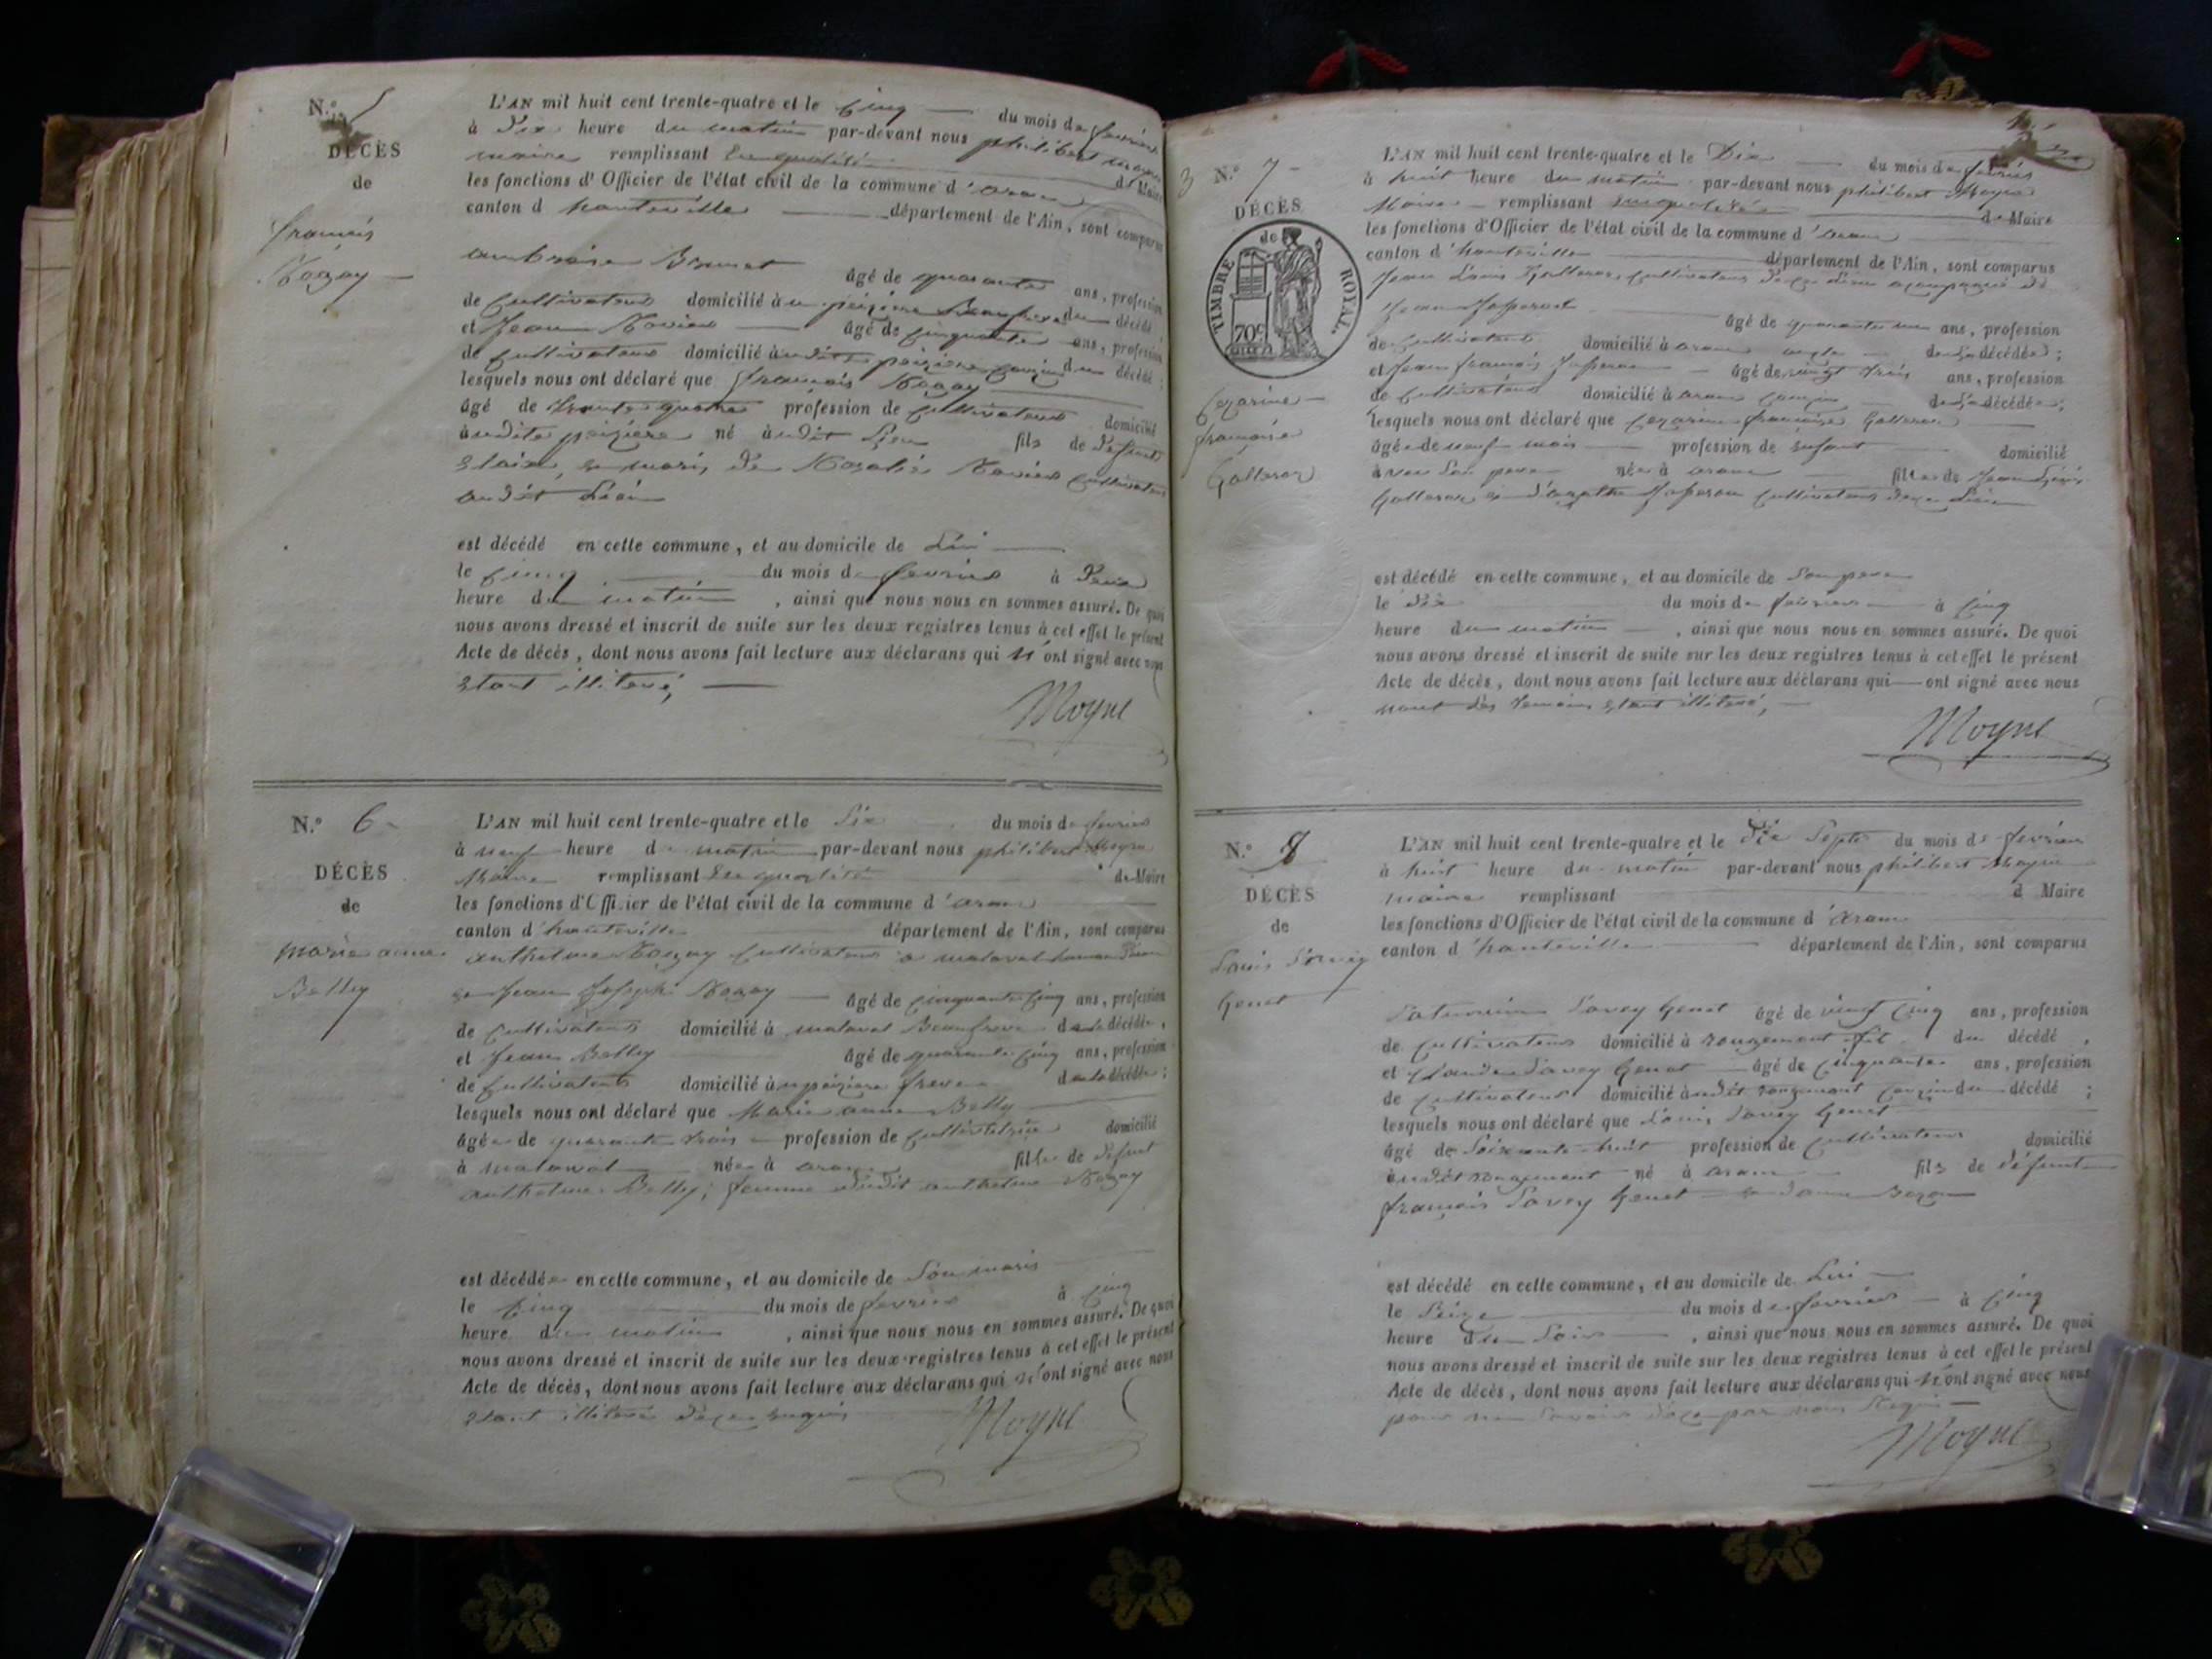 N.o 5
DÉCÈS
de
françois
Nogay
L'AN mil huit cent trente-quatre et le cinq du mois de fevrier
à dix heure du matin par-devant nous philibert moyne
maire remplissant en qualité de Maire
les fonctions d'Officier de l'état civil de la commune d'aranc
canton d hauteville département de l'Ain, sont comparus
ambroise Brunet âgé de quarante ans, profession
de cultivateur domicilié à pézières Beaufrere du décédé
et Jean Navier âgé de cinquante ans, profession
de cultivateur domicilié audit cousin du décédé ;
lesquels nous ont déclaré que françois Nogay
âgé de trente quatre profession de cultivateur domicilié
né audit Lieu fils de défunt
mari de Rosalie Navier cultivateur
audit Lieu
est décédé en cette commune, et au domicile de Lui
le cinq du mois de fevrier à deux
heure du matin, ainsi que nous nous en sommes assuré. De quoi
nous avons dressé et inscrit de suite sur les deux registres tenus à cet effet le présent
Acte de décès, dont nous avons fait lecture aux déclarans qui n'ont signé avec nous
étant illiteré,
Moyne
N.o 6
DÉCÈS
de
marie anne
Belley
L'AN mil huit cent trente-quatre et le Six du mois de fevrier
à neuf heure d matin par-devant nous philibert Moyne
Maire remplissant en qualité de Maire
les fonctions d'Officier de l'état civil de la commune d'aranc
canton d'hauteville département de l'Ain, sont comparus
anthelme Nogay cultivateur a malaval
et Jean Joseph Nogay âgé de cinquante cinq ans, profession
de cultivateur domicilié à malaval Beaufrere de la décédée,
et Jean Belley âgé de quarante cinq ans, profession
de cultivateur domicilié à frere de la décédée ;
lesquels nous ont déclaré que Marie anne Belley
âgée de quarante trois profession de cultivatrice domicilié
à malaval née à aranc fille de défunt
anthelme Belley ; femme dudit anthelme Nogay
est décédée en cette commune, et au domicile de Son mari
le cinq du mois de fevrier à cinq
heure du matin, ainsi que nous nous en sommes assuré. De quoi
nous avons dressé et inscrit de suite sur les deux registres tenus à cet effet le présent
Acte de décès, dont nous avons fait lecture aux déclarans qui n'ont signé avec nous
étant illiteré de ce requis
Moyne
3
N.o 7
DÉCÈS
de
TIMBRE ROYAL.
70c
Cezarine
françoise
Galleron
L'AN mil huit cent trente-quatre et le Dix du mois de fevrier
à huit heure du matin par-devant nous philibert Moyne
Maire remplissant en qualité de Maire
les fonctions d'Officier de l'état civil de la commune d'aranc
canton d'hauteville département de l'Ain, sont comparus
Jean Louis Galleron, cultivateur de ce Lieu acompagné de
Jean âgé de quarante un ans, profession
de cultivateur domicilié à aranc oncle de la décédée ;
et Jean françois âgé de vingt trois ans, profession
de cultivateur domicilié à aranc cousin de la décédée ;
lesquels nous ont déclaré que Cezarine françoise Galleron
âgée de neuf mois profession de enfant domicilié
avec Son pere née à aranc fille de Jean Louis
Galleron et d'agathe cultivateur de ce Lieu
est décédé en cette commune, et au domicile de Son pere
le dix du mois de fevrier à cinq
heure du matin, ainsi que nous nous en sommes assuré. De quoi
nous avons dressé et inscrit de suite sur les deux registres tenus à cet effet le présent
Acte de décès, dont nous avons fait lecture aux déclarans qui ont signé avec nous
non les temoins étant illiteré,
Moyne
N.o 8
DÉCÈS
de
Louis Savey
Genet
L'AN mil huit cent trente-quatre et le dix Sept du mois de fevrier
à huit heure du matin par-devant nous philibert Moyne
maire remplissant d Maire
les fonctions d'Officier de l'état civil de la commune d'aranc
canton d'hauteville département de l'Ain, sont comparus
Saturnin Savey Genet âgé de vingt cinq ans, profession
de cultivateur domicilié à rougemont fils du décédé,
et Claude Savey Genet âgé de cinquante ans, profession
de cultivateur domicilié audit rougemont cousin du décédé ;
lesquels nous ont déclaré que Louis Savey Genet
âgé de Soixante huit profession de cultivateur domicilié
audit rougemont né à aranc fils de défunt
françois Savey Genet et d'anne
est décédé en cette commune, et au domicile de Lui
le Seize du mois de fevrier à cinq
heure du Soir, ainsi que nous nous en sommes assuré. De quoi
nous avons dressé et inscrit de suite sur les deux registres tenus à cet effet le présent
Acte de décès, dont nous avons fait lecture aux déclarans qui n'ont signé avec nous
pour ne Savoir de ce par nous Requis
Moyne